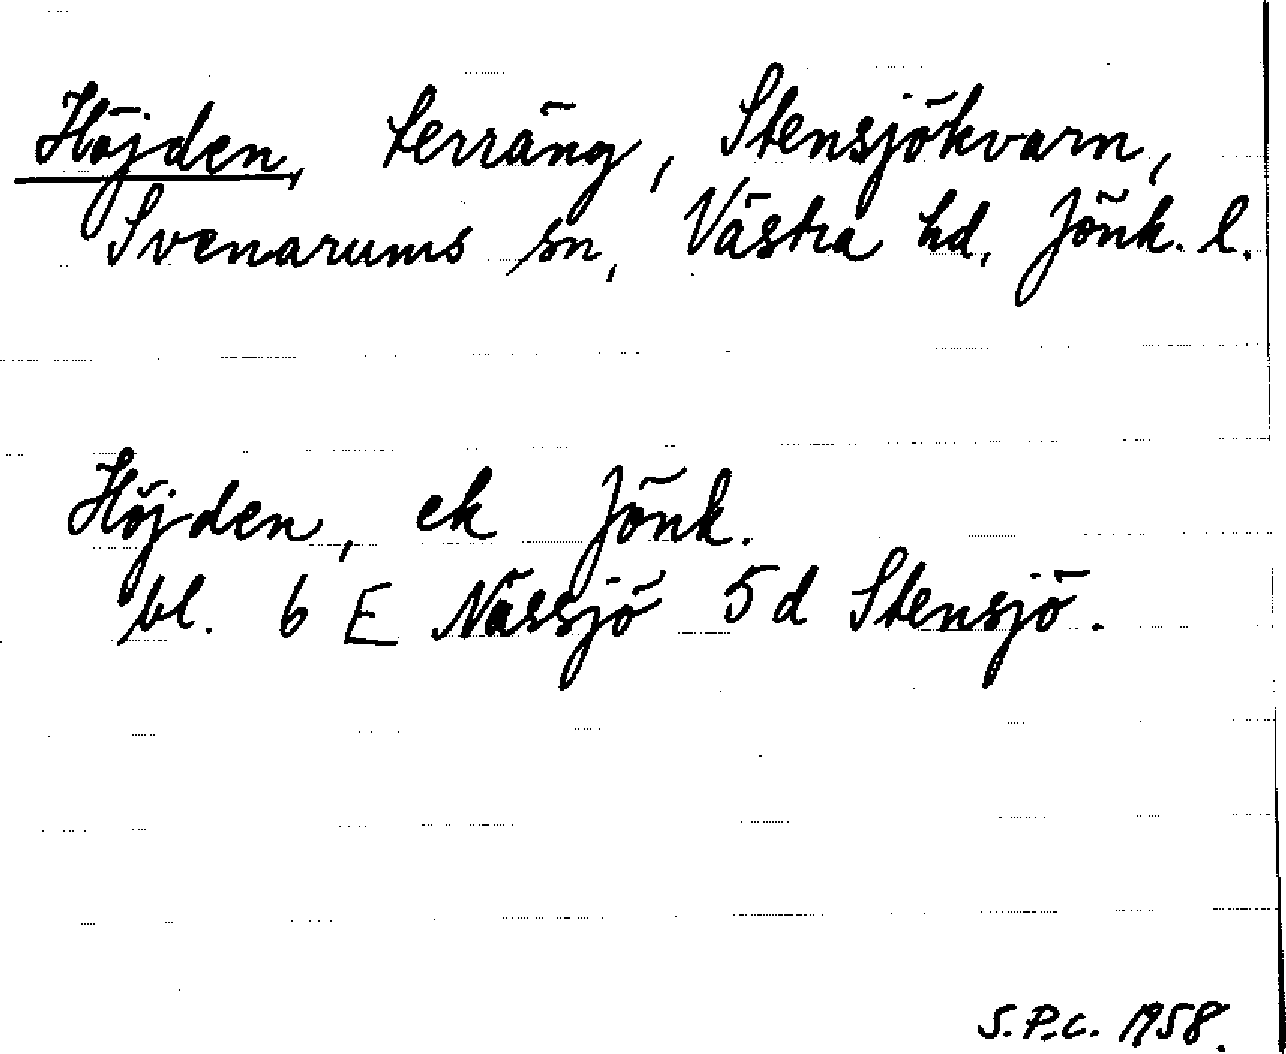 Höjden, terräng, Stensjökvarn,
Svenarums sn, Västra hd, Jönk. l.
Höjden, ek Jönk.
bl. 6 E Nässjö 5d Stensjö.
S.P.C. 1958.